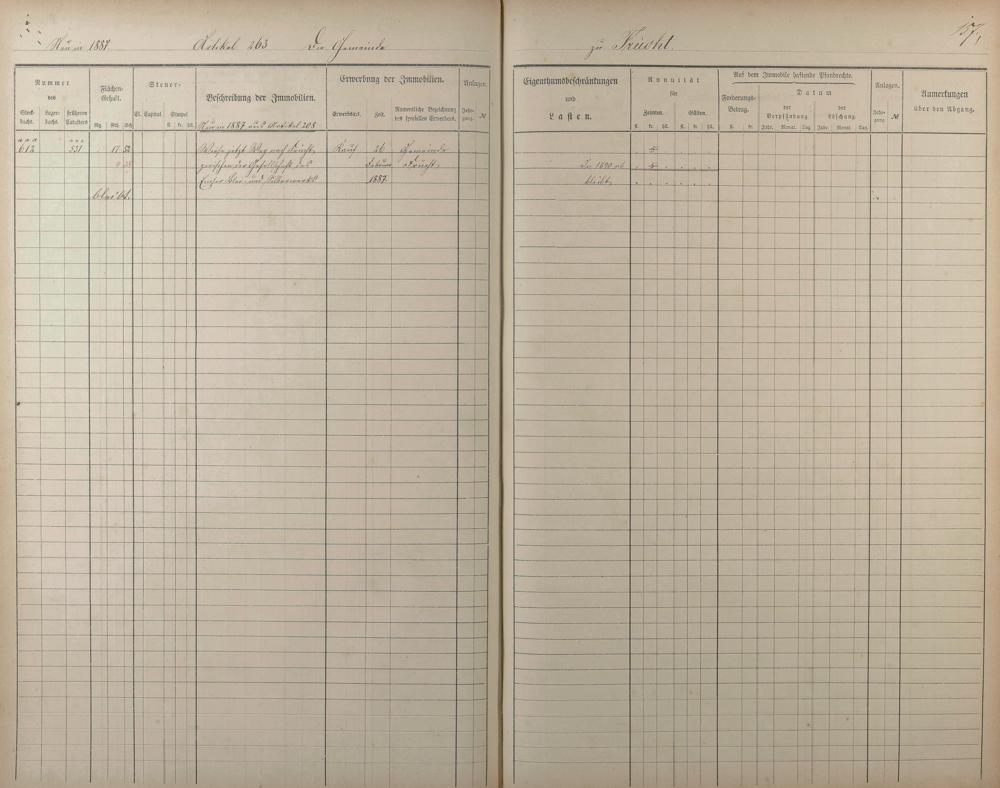 Neu in 1887
Artikel 263
Die Gemeinde
zu Frücht.
157,
Nummer
des
Stock-
buchs.
Lager-
buchs.
früheren
Catasters
Flächen-
Gehalt.
Mg. Rth. Sch
Steuer-
St. Capital
Simpel
fl. kr. hl.
Beschreibung der Immobilien.
Erwerbung der Immobilien.
Erwerbsart.
Zeit.
Namentliche Bezeichnung
des speziellen Erwerbers.
Anlagen.
Jahr-
gang.
№
Eigenthumsbeschränkungen
und
Lasten.
Annuität
für
Zehnten.
fl. kr. hl.
Gülten.
fl. kr. hl.
Auf dem Immobile haftende Pfandrechte.
Forderungs-
Betrag.
fl. kr.
Datum
der
Verpfändung
Jahr. Monat. Tag.
der
Löschung.
Jahr. Monat. Tag.
Anlagen.
Jahr-
gang.
№
Anmerkungen
über den Abgang.
Neu in 1887 aus Artikel 208
612 531 17 52 Wiese jetzt Weg nach Frücht, Kauf 26 Gemeinde
zwischen der Gesellschaft des Februar Frücht.
Emser Blei- und Silberwerks 1887.
In 1890 ab
bleibt,